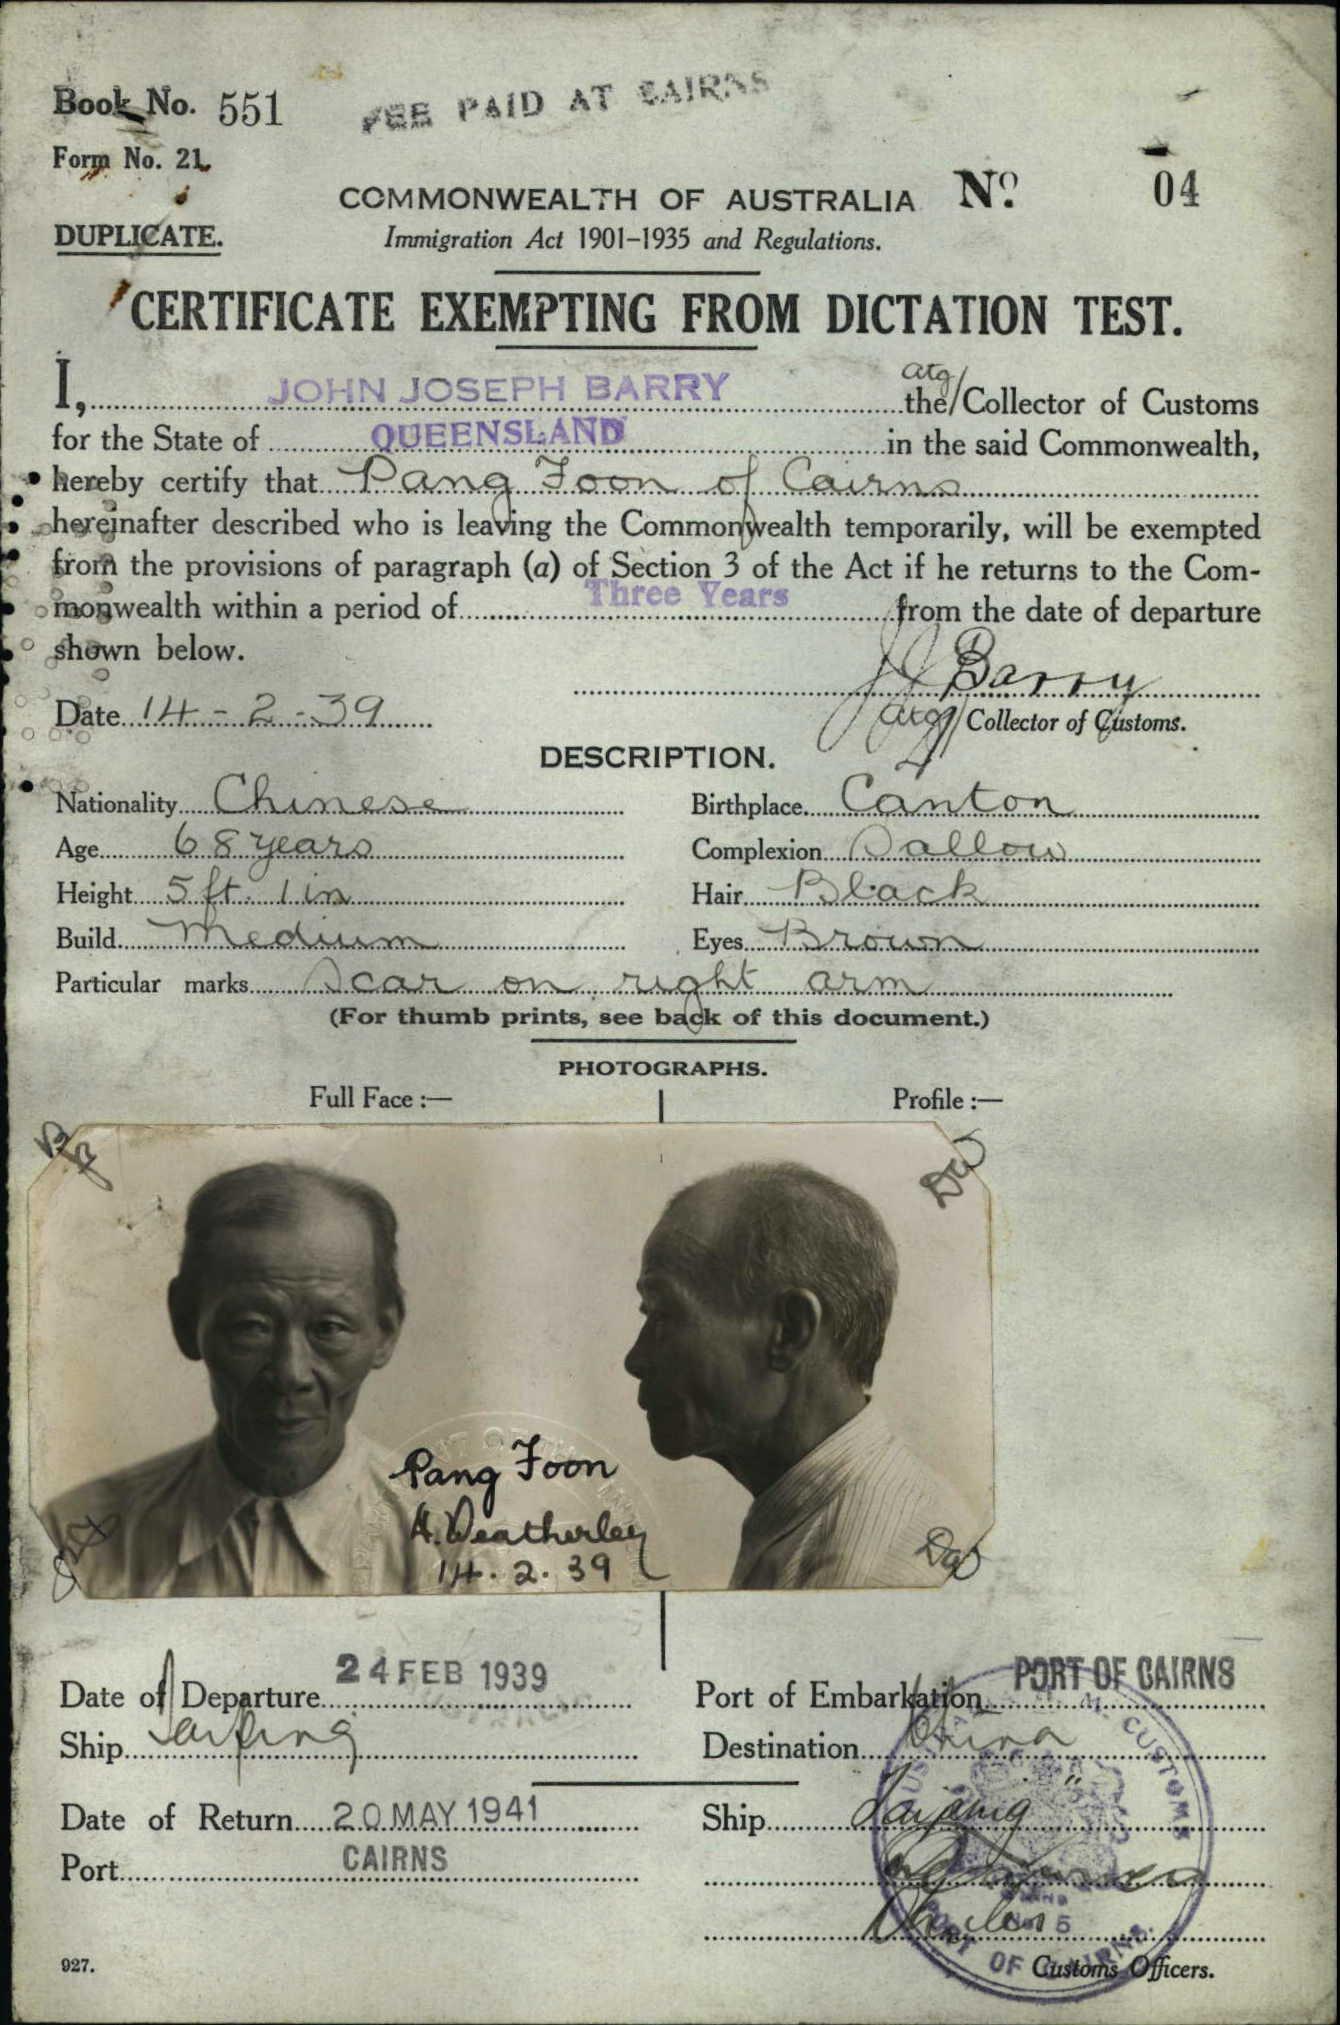 Book No. 551
FEE PAID AT CAIRNS
Form No. 21.
COMMONWEALTH OF AUSTRALIA No. 04
DUPLICATE.
Immigration Act 1901-1935 and Regulations.
CERTIFICATE EXEMPTING FROM DICTATION TEST.
I, JOHN JOSEPH BARRY the/Collector of Customs
atg
for the State of QUEENSLAND in the said Commonwealth,
hereby certify that Pang Foon of Cairns
hereinafter described who is leaving the Commonwealth temporarily, will be exempted
from the provisions of paragraph (a) of Section 3 of the Act if he returns to the Com-
monwealth within a period of Three Years from the date of departure
shown below.
J J Barry
Date 14-2-39
atg/ Collector of Customs.
DESCRIPTION.
Nationality Chinese Birthplace Canton
Age 68 years Complexion Sallow
Height 5 ft. 1 in Hair Black
Build Medium Eyes Brown
Particular marks Scar on right arm
(For thumb prints, see back of this document.)
PHOTOGRAPHS.
Full Face :— Profile :—
Pang Foon
H. Weatherley
14.2.39
Date of Departure 24 FEB 1939 Port of Embarkation PORT OF CAIRNS
Ship Taiping Destination China
Date of Return 20 MAY 1941 Ship "Taiping"
Port CAIRNS
CUSTOMS
5
PORT OF CAIRNS.
927.
Customs Officers.